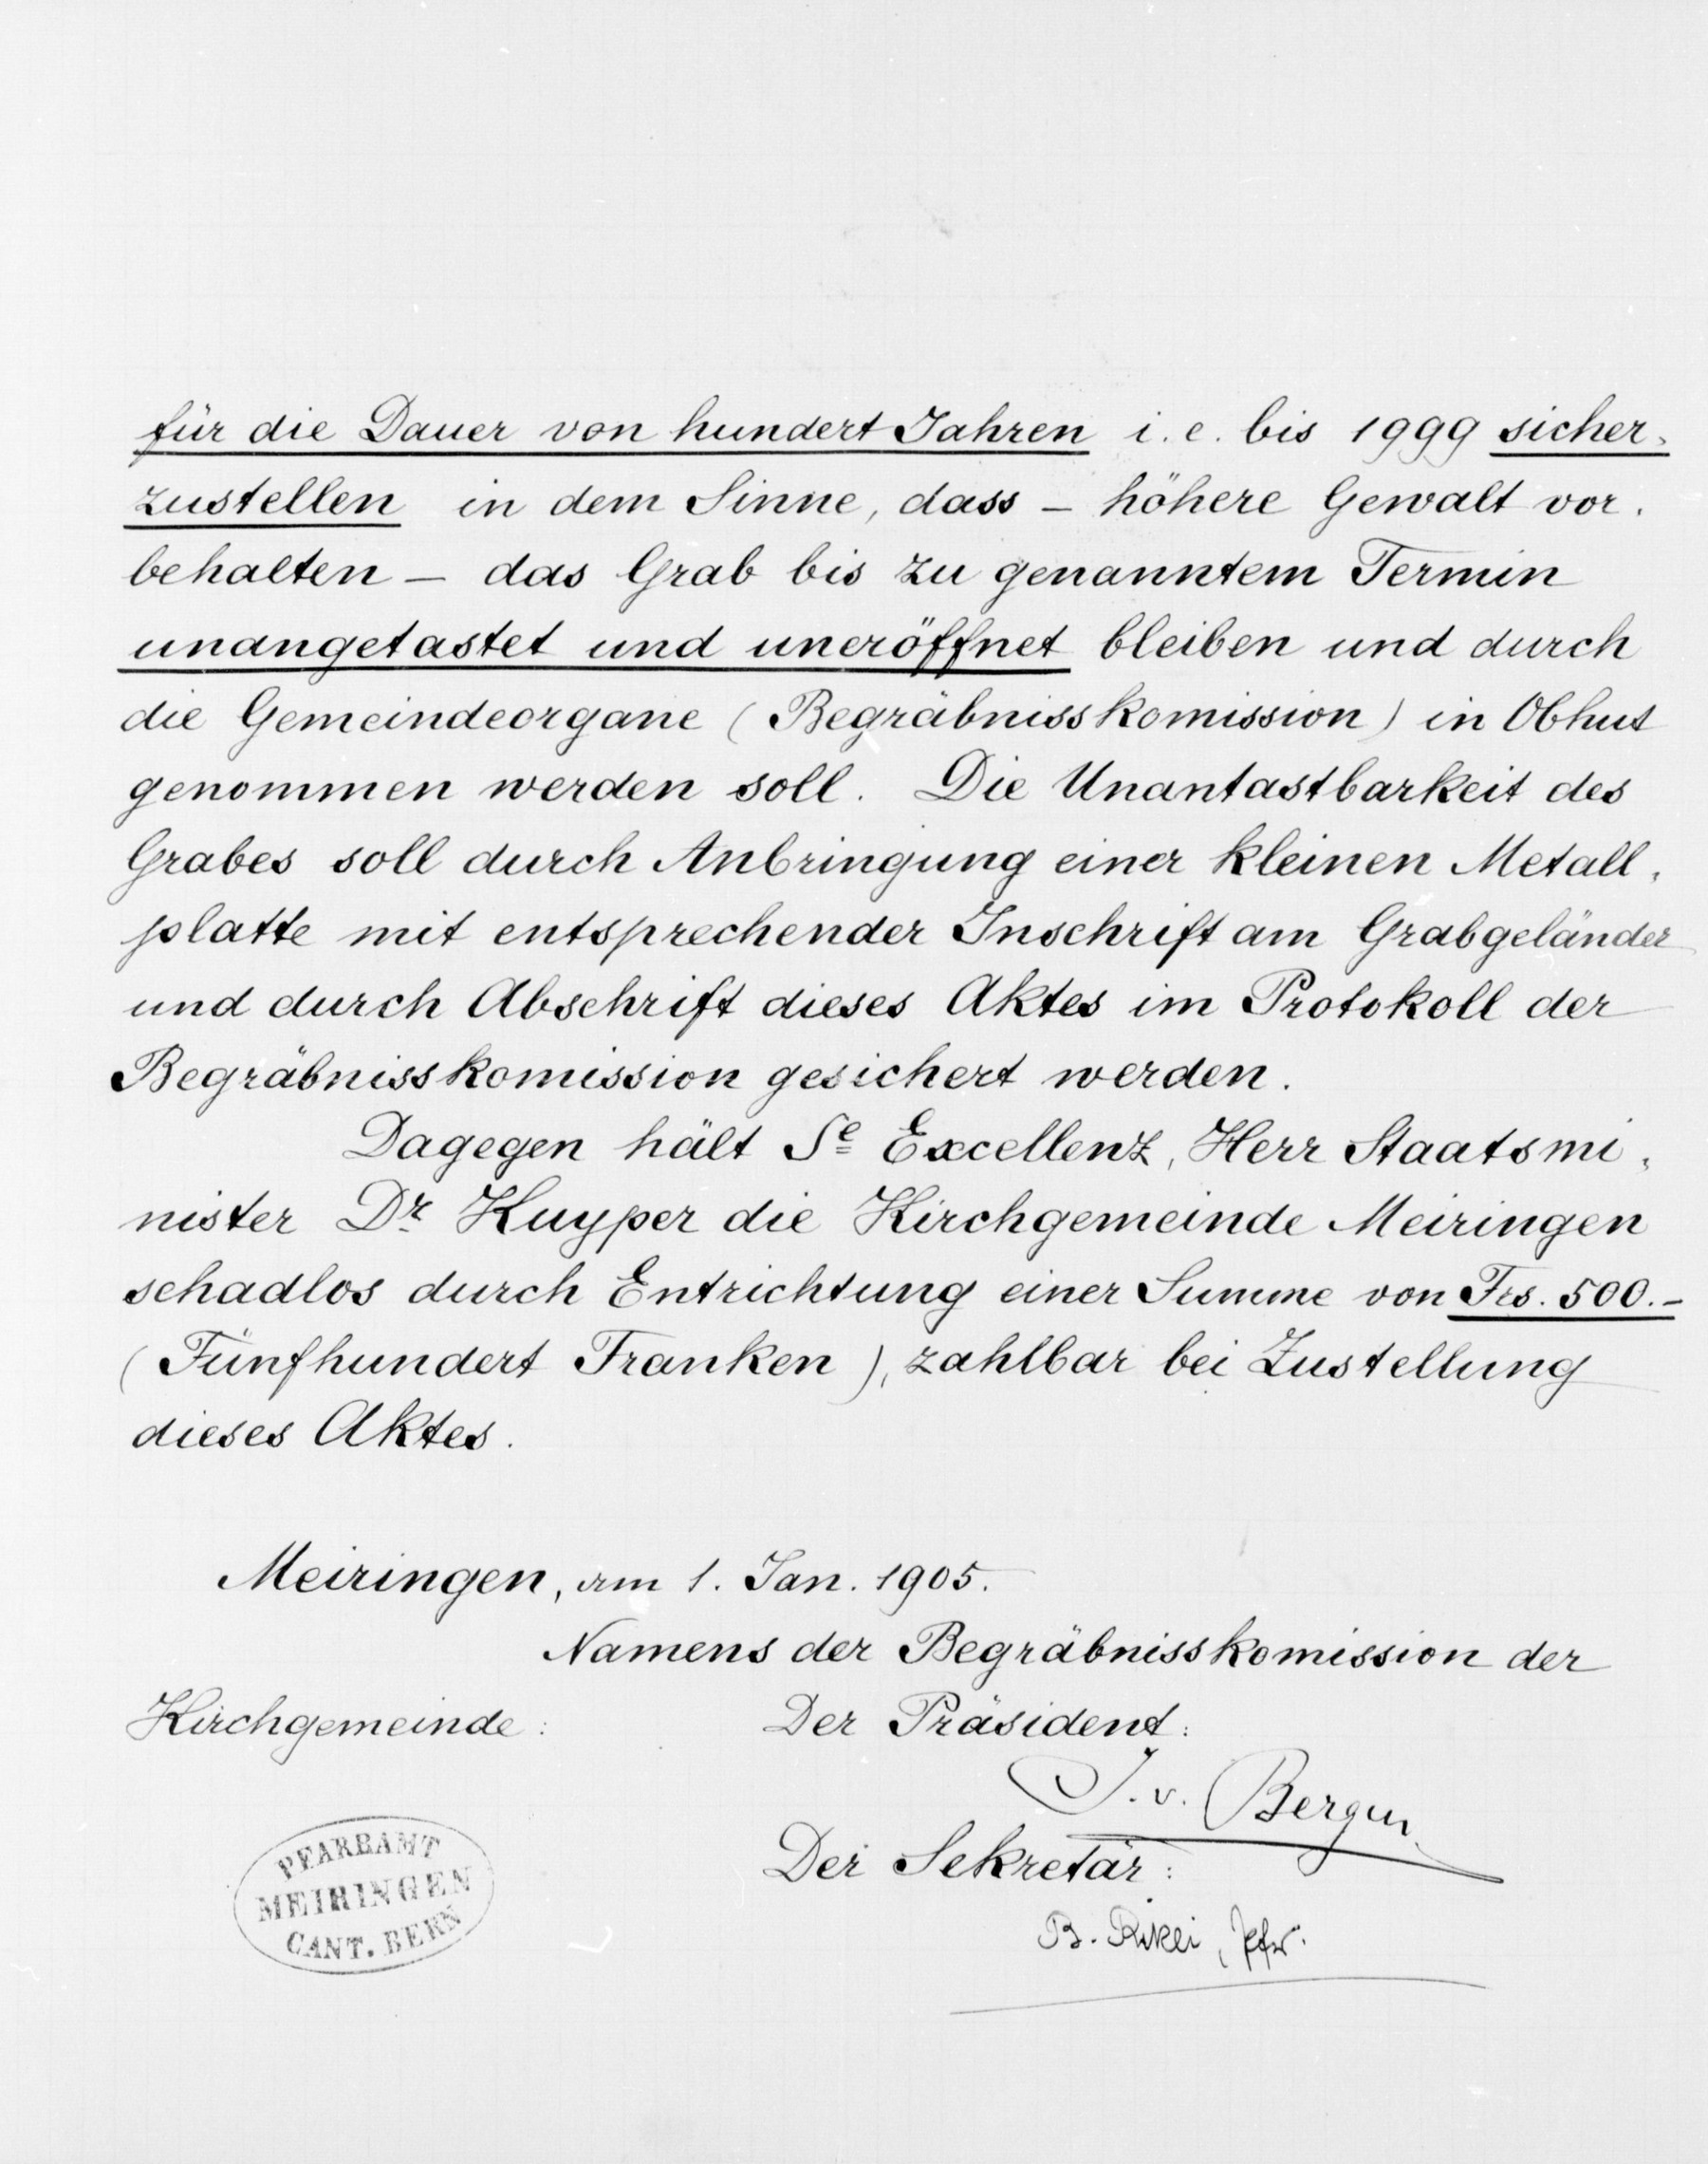 für die Dauer von hundert Jahren i.e. bis 1999 sicher-
zustellen in dem Sinne, dass – höhere Gewalt vor-
behalten – das Grab bis zu genanntem Termin
unangetastet und uneröffnet bleiben und durch
die Gemeindeorgane (Begräbnisskomission) in Obhut
genommen werden soll. Die Unantastbarkeit des
Grabes soll durch Anbringung einer kleinen Metall-
platte mit entsprechender Inschrift am Grabgeländer
und durch Abschrift dieses Aktes im Protokoll der
Begräbnisskomission gesichert werden.
Dagegen hält Se Excellenz, Herr Staatsmi-
nister Dr. Kuyper die Kirchgemeinde Meiringen
schadlos durch Entrichtung einer Summe von Frs. 500.-
(Fünfhundert Franken), zahlbar bei Zustellung
dieses Aktes.
Meiringen, am 1. Jan. 1905.
Namens der Begräbnisskomission der
Kirchgemeinde: Der Präsident:
J. v. Bergen
Der Sekretär:
B. Rikli, Pfr.
PFARRAMT
MEIRINGEN
CANT. BERN